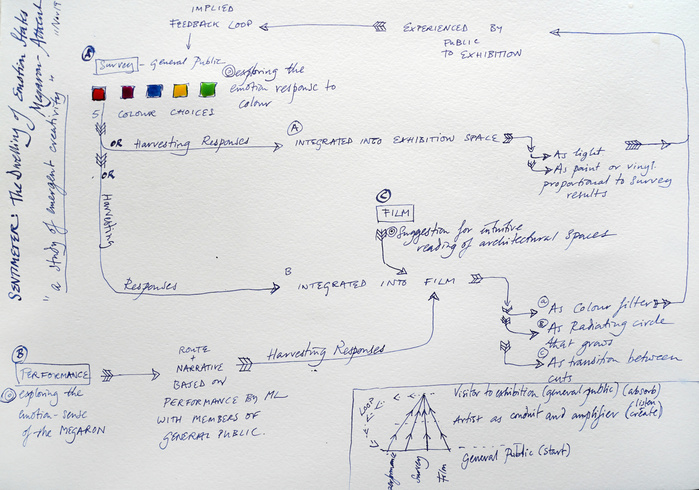 SENTIMETER: The Dwelling of Emotion States
Megaron - Attend
"a study of emergent creativity"
IMPLIED
FEEDBACK LOOP
EXPERIENCED BY
PUBLIC
TO EXHIBITION
A
Survey - General Public
exploring the
emotion response to
colour
5 COLOUR CHOICES
OR Harvesting Responses
A
INTEGRATED INTO EXHIBITION SPACE
As light
As paint or vinyl
proportional to survey
results
OR
Harvesting
Responses
C
FILM
Suggestion for intuitive
reading of architectural spaces
B
INTEGRATED INTO FILM
As Colour filter
B As Radiating circle
that grows
C As transition between
cuts
B
PERFORMANCE
exploring the
emotion-sense
of the MEGARON
ROUTE
+
NARRATIVE
BASED ON
PERFORMANCE BY ML
WITH MEMBERS OF
GENERAL PUBLIC.
Harvesting Responses
LOOP
Visitor to exhibition (general public) (absorb)
listen
Artist as conduit and amplifier (create)
General Public (start)
Performance
Survey
Film